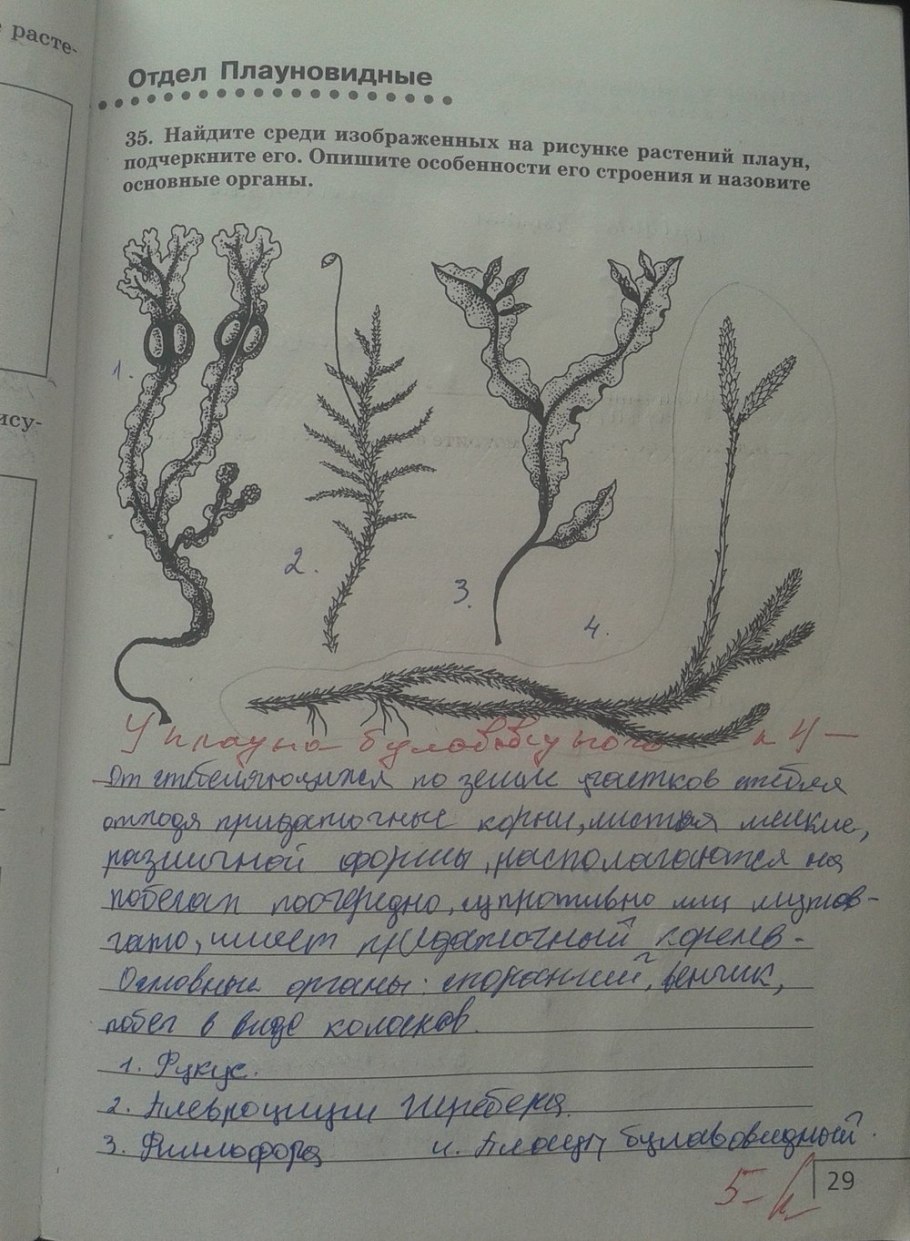 е расте-
ису-
Отдел Плауновидные
35. Найдите среди изображенных на рисунке растений плаун,
подчеркните его. Опишите особенности его строения и назовите
основные органы.
1.
2.
3.
4.
У плауна
От по земле участков стебля
отходя придаточные корни, листья мелкие,
различной формы, располагаются на
побегах поочередно, супротивно или мутов-
чато, имеет придаточный корень.
Основные органы: спорангий, венчик,
побег в виде колосков.
1. Фукус.
2. Шребера.
3. Филлофора
4. булавовидный.
5-
29